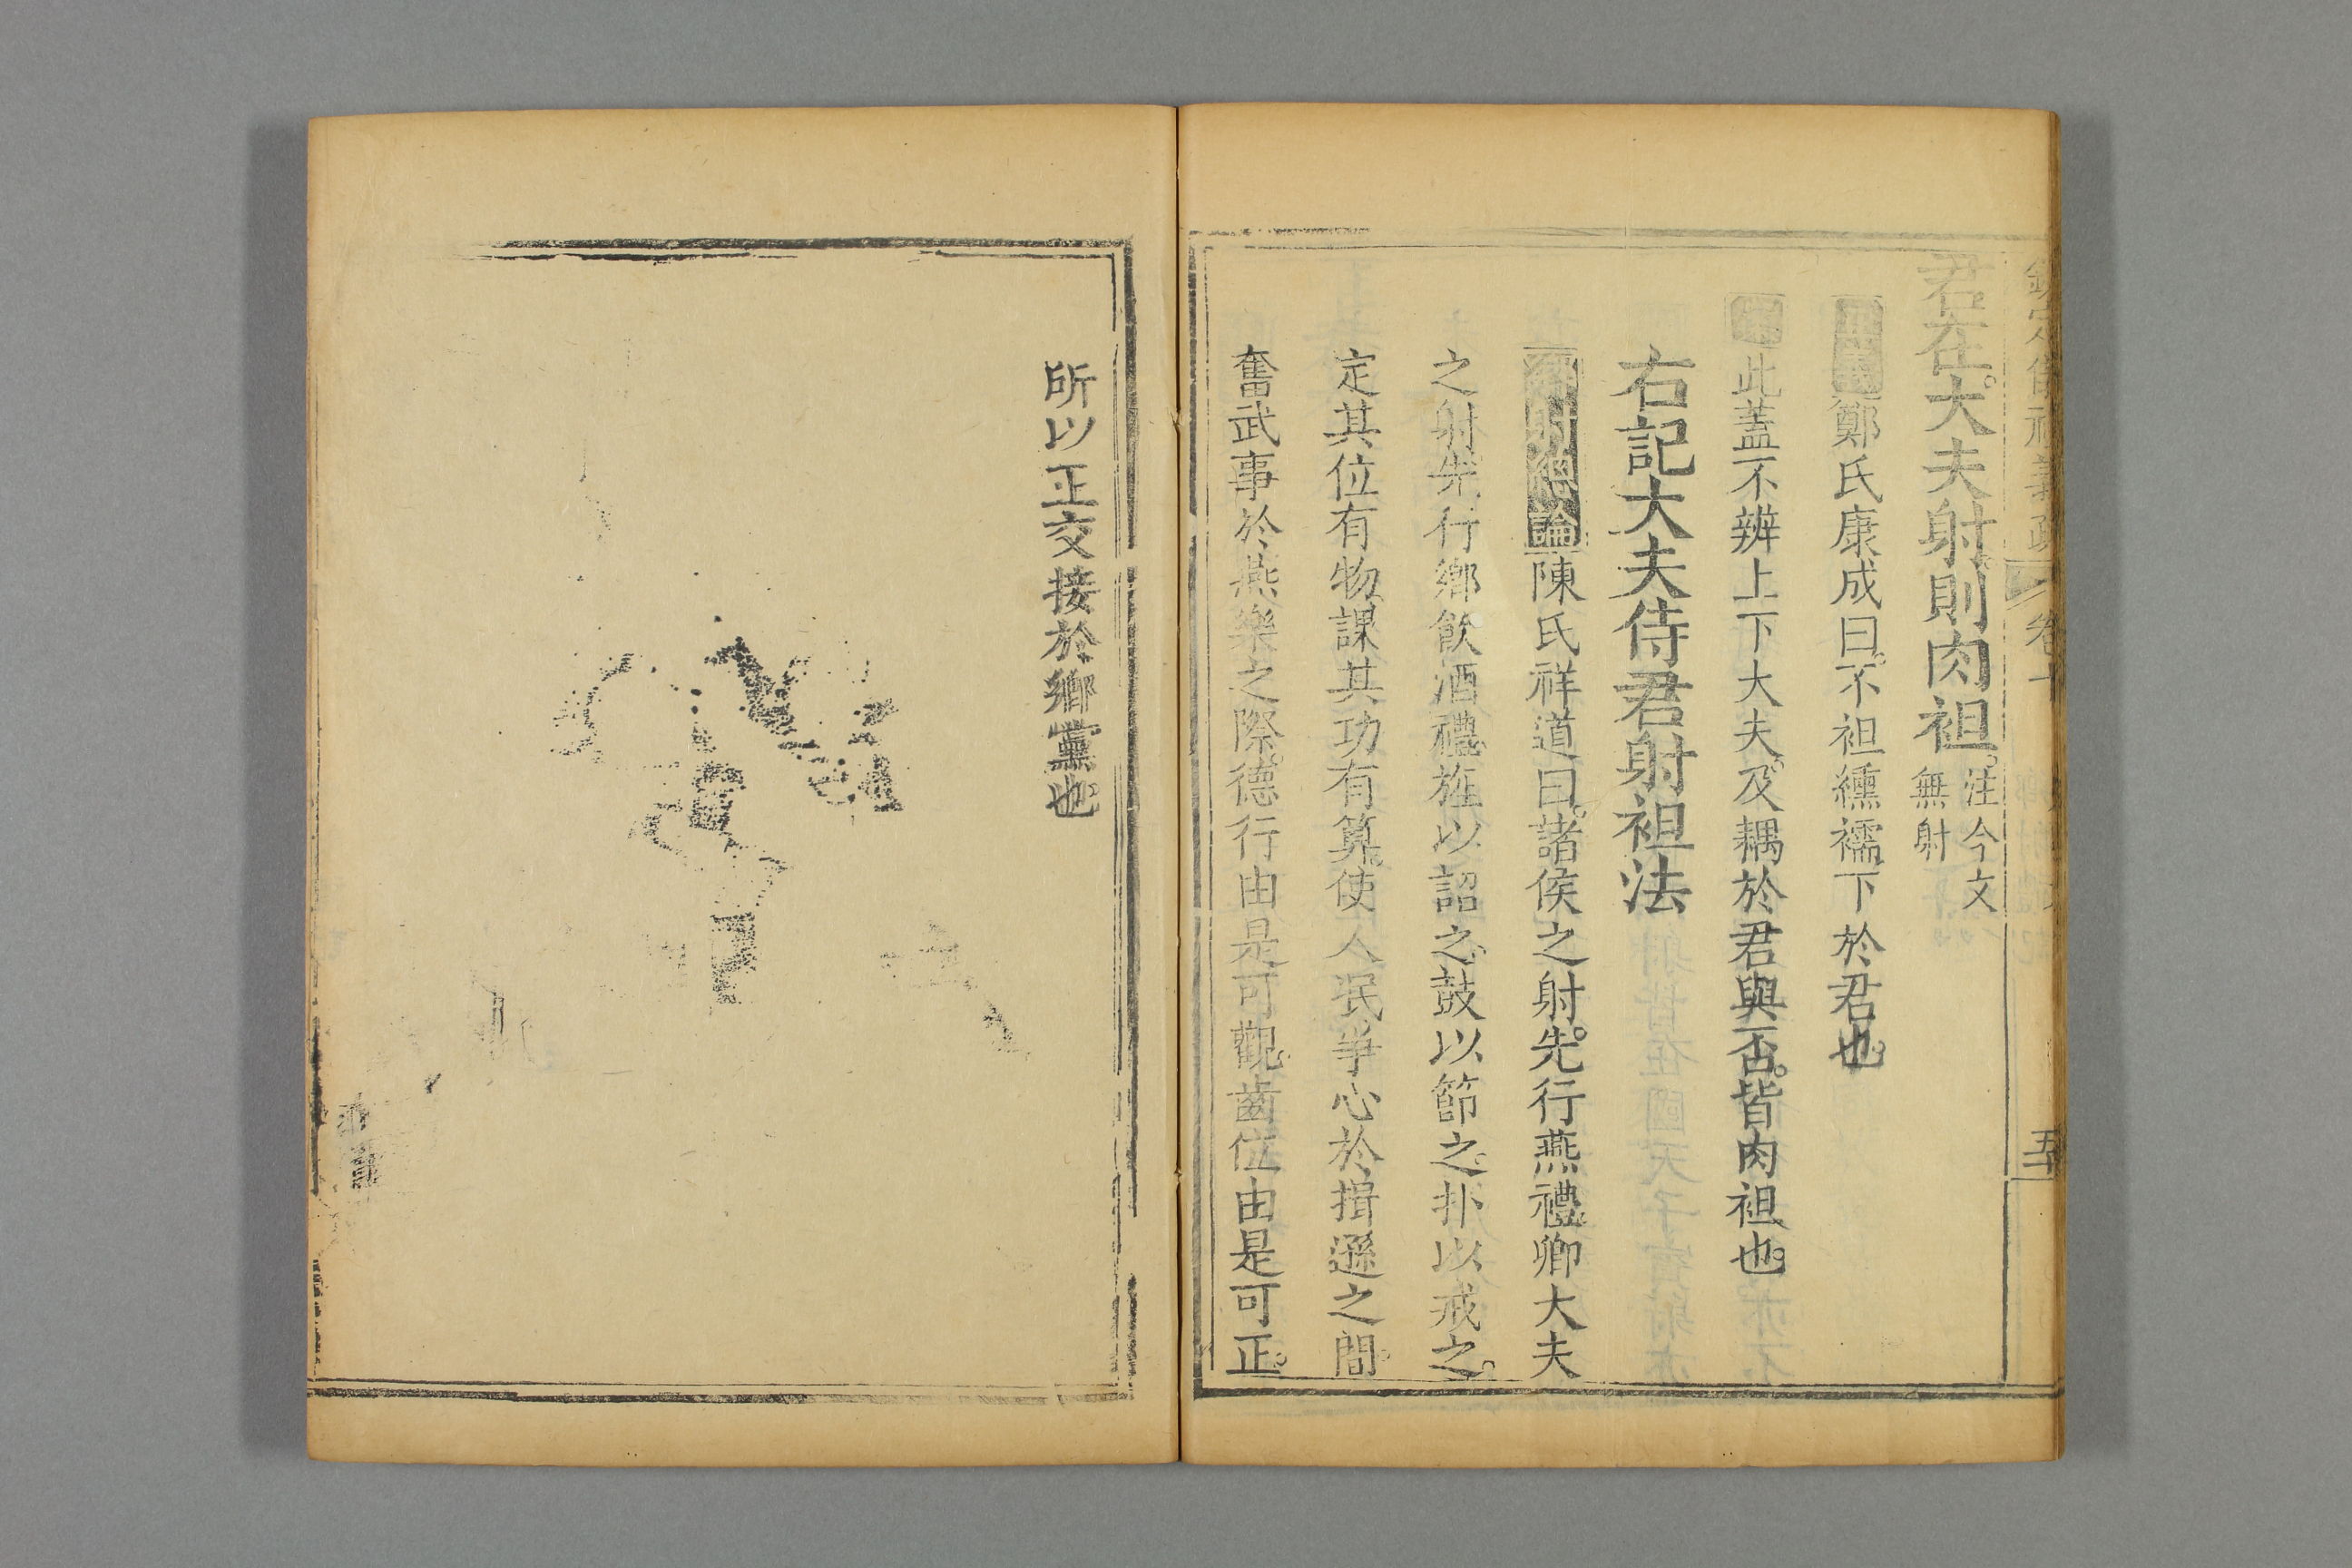 君在。大夫射。則肉袒。注今文無射
正義鄭氏康成曰。不袒纁襦。下於君也。
案此蓋不辨上下大夫。及耦於君與否。皆肉袒也。
右記大夫侍君射袒法
鄉射總論陳氏祥道曰。諸侯之射。先行燕禮。卿大夫
之射。先行鄉飲酒禮。旌以詔之。鼓以節之。扑以戒之。
定其位有物。課其功有算。使人泯爭心於揖遜之間。
奮武事於燕樂之際。德行由是可觀。齒位由是可正。
所以正交接於鄉黨也。